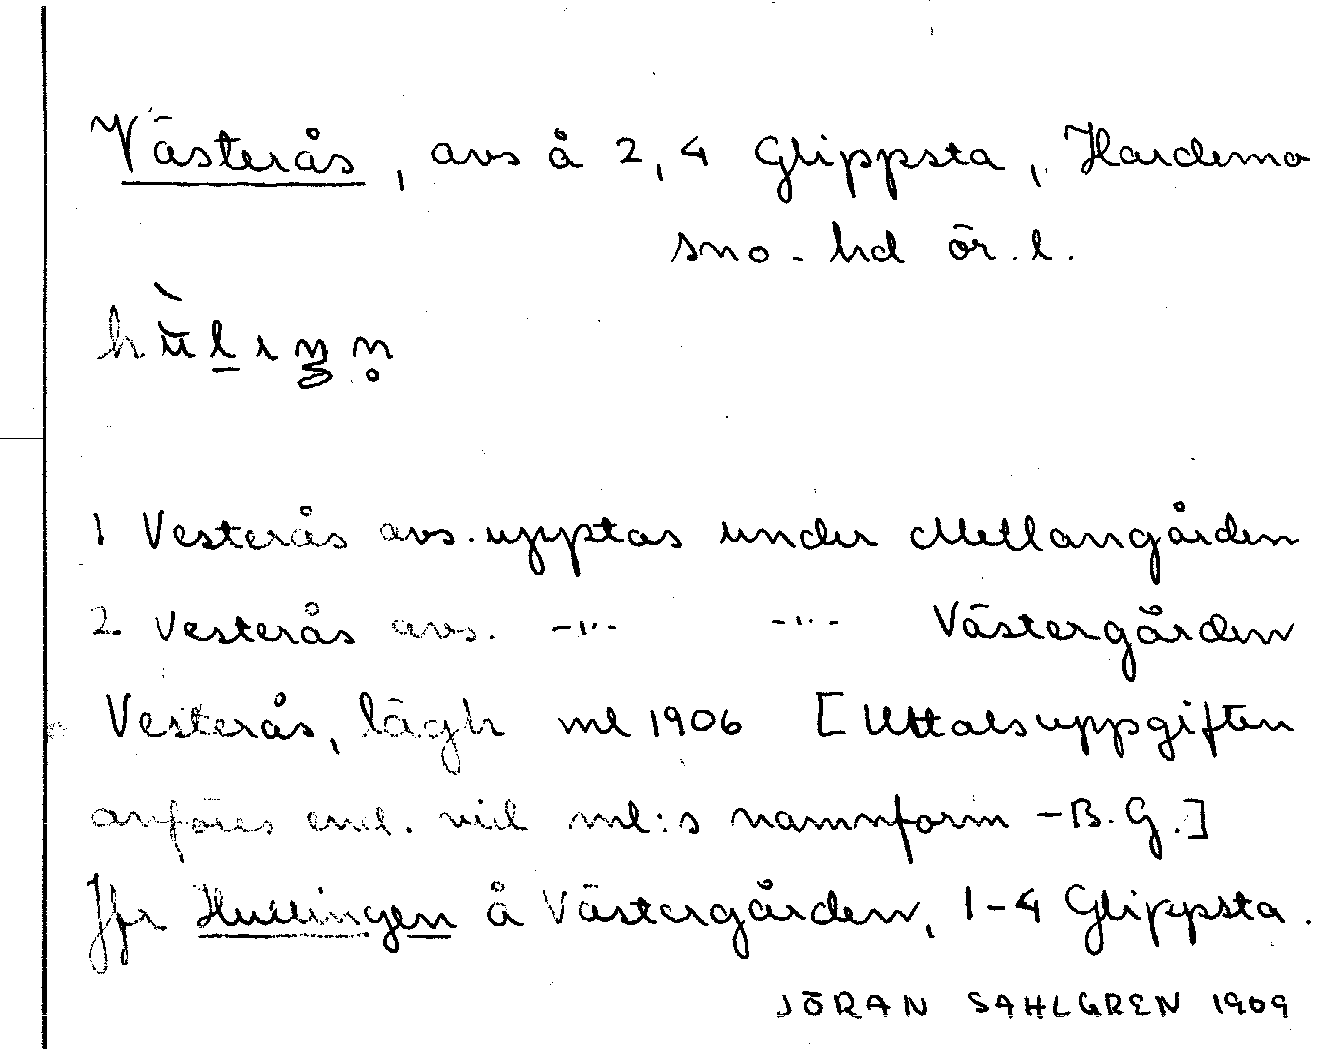 Västerås, avs å 2,4 Glippsta, Hardemo
sno - hd ör. l.
hùlıŋn̥
1 Vesterås avs. upptas under Mellangården
2 Vesterås avs. -"- -"- Västergården
Vesterås, lägh ml 1906 [Uttalsuppgiften
anföres end. vid ml:s namnform -B.G.]
Jfr Hullingen å Västergården, 1-4 Glippsta.
JÖRAN SAHLGREN 1909